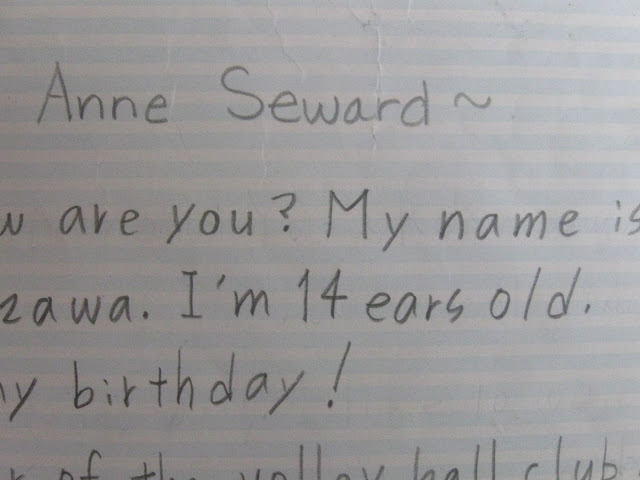 Anne Seward ~
w are you? My name is
zawa. I'm 14 ears old.
y birthday!
r of the volley ball club